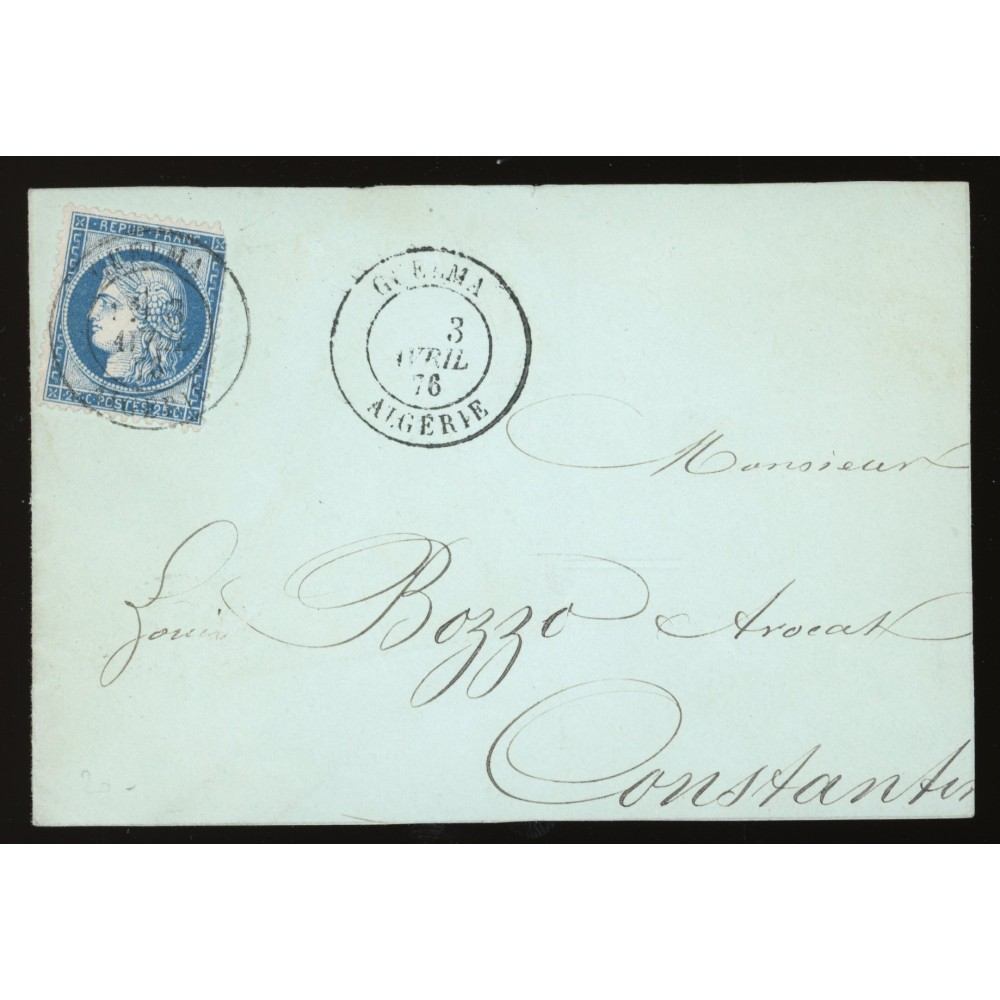 REPUB FRANC
GUELMA
3
AVRIL
76
ALGÉRIE
25 C POSTES 25 C
Monsieur
Louis Bozzo Avocat
Constantin